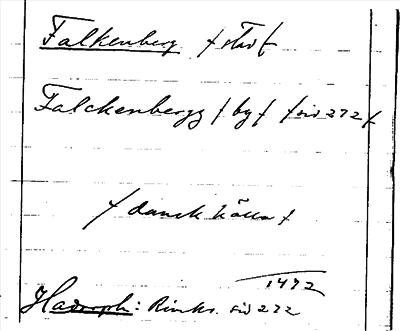 Falkenberg /stad/
Falckenbergz /by/ /sid 272/
/dansk källa/
1492
Hadorph: Rimkr. sid 272